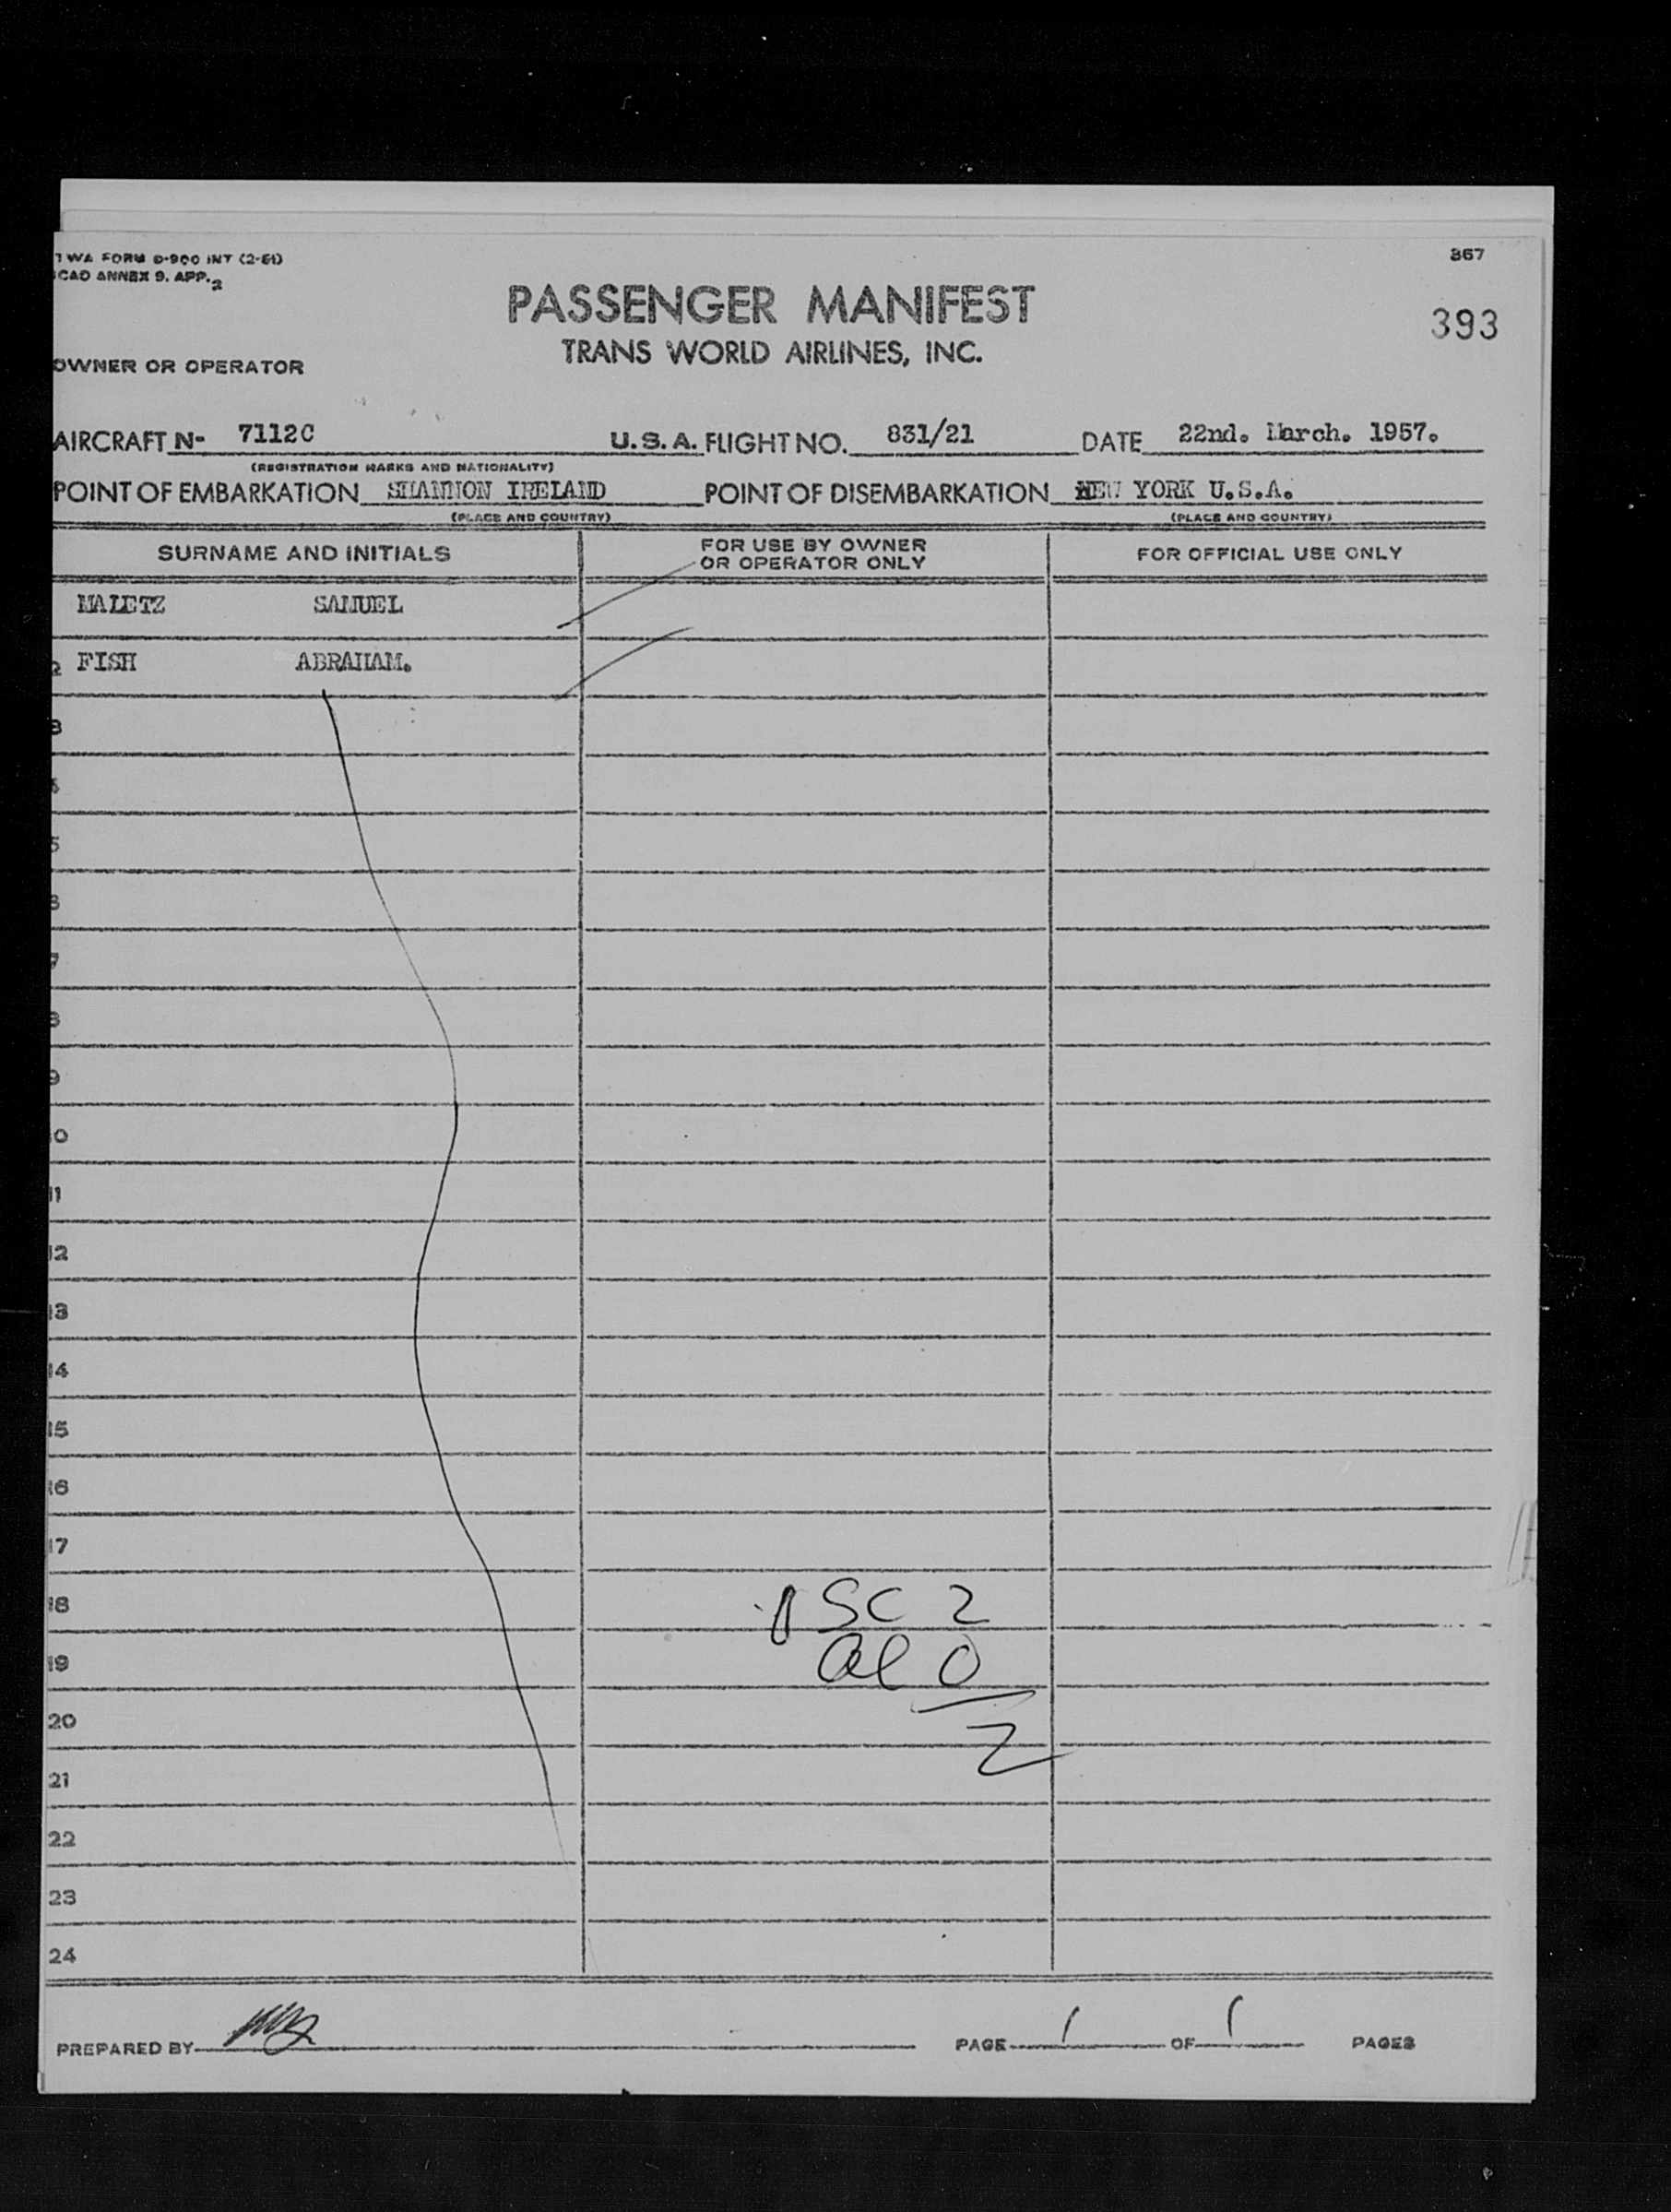 TWA FORM O-900 INT (2-51)
367
ICAO ANNEX 9. APP. 2
PASSENGER MANIFEST
393
TRANS WORLD AIRLINES, INC.
OWNER OR OPERATOR
AIRCRAFT N- 7112C U.S.A. FLIGHT NO. 831/21 DATE 22nd. March. 1957.
(REGISTRATION MARKS AND NATIONALITY)
POINT OF EMBARKATION SHANNON IRELAND POINT OF DISEMBARKATION NEW YORK U.S.A.
(PLACE AND COUNTRY) (PLACE AND COUNTRY)
SURNAME AND INITIALS
FOR USE BY OWNER
OR OPERATOR ONLY
FOR OFFICIAL USE ONLY
MALETZ SAMUEL
2 FISH ABRAHAM.
3
4
5
6
7
8
9
10
11
12
13
14
15
16
17
18 SC 2
19 al 0
20 2
21
22
23
24
PREPARED BY PAGE 1 OF 1 PAGES